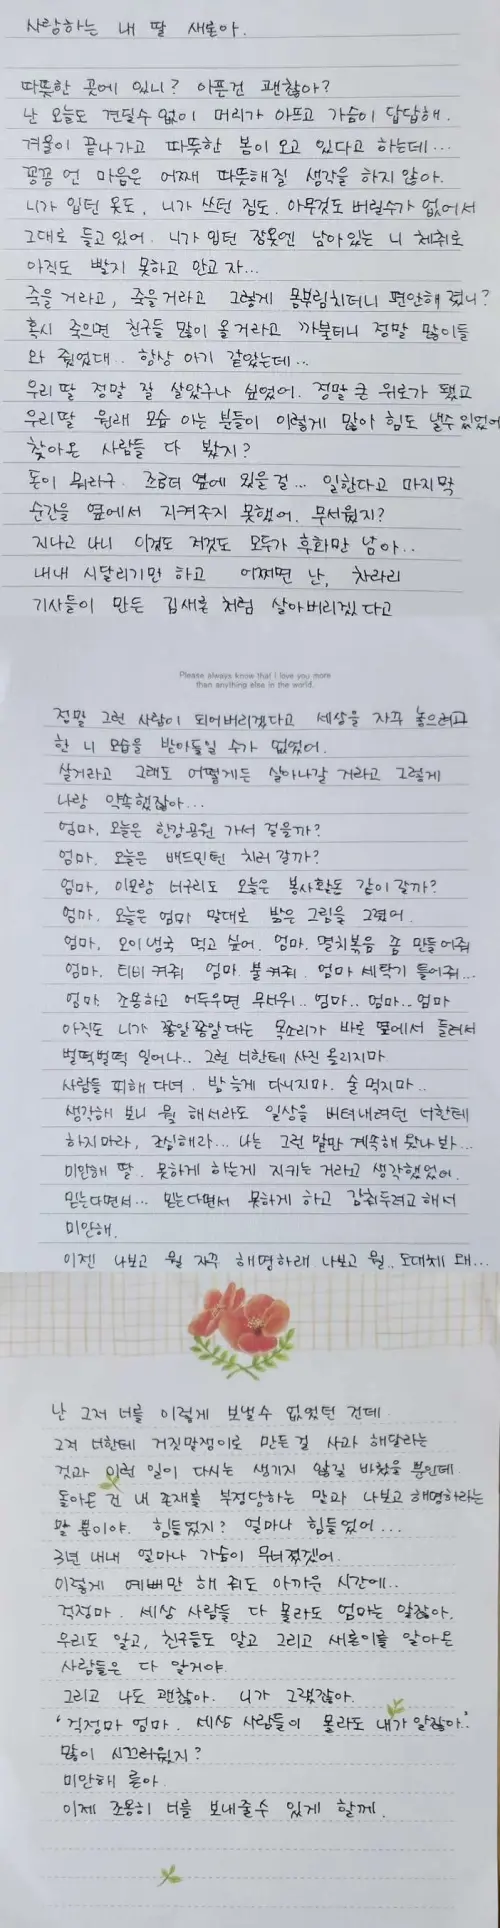 사랑하는 내 딸 새론아.
따뜻한 곳에 있니? 아픈건 괜찮아?
난 오늘도 견딜수 없이 머리가 아프고 가슴이 답답해.
겨울이 끝나가고 따뜻한 봄이 오고 있다고 하는데...
꽁꽁 언 마음은 어째 따뜻해질 생각을 하지 않아.
니가 입던 옷도, 니가 쓰던 짐도. 아무것도 버릴수가 없어서
그대로 들고 있어. 니가 입던 잠옷엔 남아있는 니 체취로
아직도 빨지 못하고 안고 자...
죽을 거라고, 죽을거라고 그렇게 몸부림치더니 편안해 졌니?
혹시 죽으면 친구들 많이 올거라고 까불더니 정말 많이들
와 줬었대.. 항상 아기 같았는데...
우리 딸 정말 잘 살았구나 싶었어. 정말 큰 위로가 됐고
우리딸 원래 모습 아는 분들이 이렇게 많아 힘도 낼수 있었어
찾아온 사람들 다 봤지?
돈이 뭐라구. 조금더 옆에 있을 걸... 일한다고 마지막
순간을 옆에서 지켜주지 못했어. 무서웠지?
지나고 나니 이것도 저것도 모두가 후회만 남아..
내내 시달리기만 하고 어쩌면 난, 차라리
기사들이 만든 김새론 처럼 살아버리겠다고
Please always know that I love you more
than anything else in the world.
정말 그런 사람이 되어버리겠다고 세상을 자꾸 놓으려고
한 니 모습을 받아들일 수가 없었어.
살거라고 그래도 어떻게든 살아나갈 거라고 그렇게
나랑 약속했잖아...
엄마, 오늘은 한강공원 가서 걸을까?
엄마. 오늘은 배드민턴 치러 갈까?
엄마, 이모랑 너구리도 오늘은 봉사활동 같이 갈까?
엄마. 오늘은 엄마 말대로 밝은 그림을 그렸어.
엄마, 오이냉국 먹고 싶어. 엄마. 멸치볶음 좀 만들어줘
엄마. 티비 켜줘 엄마. 불 켜줘. 엄마 세탁기 돌어줘...
엄마. 조용하고 어두우면 무서워.. 엄마.. 엄마.. 엄마
아직도 니가 쫑알쫑알 대는 목소리가 바로 옆에서 들려서
벌떡벌떡 일어나.. 그런 너한테 사진 올리지마
사람들 피해 다녀. 밤 늦게 다니지마. 술 먹지마..
생각해 보니 뭘 해서라도 일상을 버텨내려던 너한테
하지마라, 조심해라... 나는 그런 말만 계속해 댔나 봐...
미안해 딸. 못하게 하는게 지키는 거라고 생각했었어.
믿는다면서... 믿는다면서 못하게 하고 감춰두려고 해서
미안해.
이젠 나보고 뭘 자꾸 해명하래 나보고 뭘.. 도대체 왜...
난 그저 너를 이렇게 보낼수 없었던 건데
그저 너한테 거짓말쟁이로 만든걸 사과 해달라는
것과 이런 일이 다시는 생기지 않길 바랬을 뿐인데.
돌아온 건 내 존재를 부정당하는 말과 나보고 해명하라는
말 뿐이야. 힘들었지? 얼마나 힘들었어...
3년 내내 얼마나 가슴이 무너졌겠어.
이렇게 예뻐만 해 줘도 아까운 시간에..
걱정마. 세상 사람들 다 몰라도 엄마는 알잖아.
우리도 알고, 친구들도 알고 그리고 새론이를 알아온
사람들은 다 알거야.
그리고 나도 괜찮아. 니가 그랬잖아.
'걱정마 엄마. 세상 사람들이 몰라도 내가 알잖아.'
많이 시끄러웠지?
미안해 론아.
이제 조용히 너를 보내줄수 있게 할께.